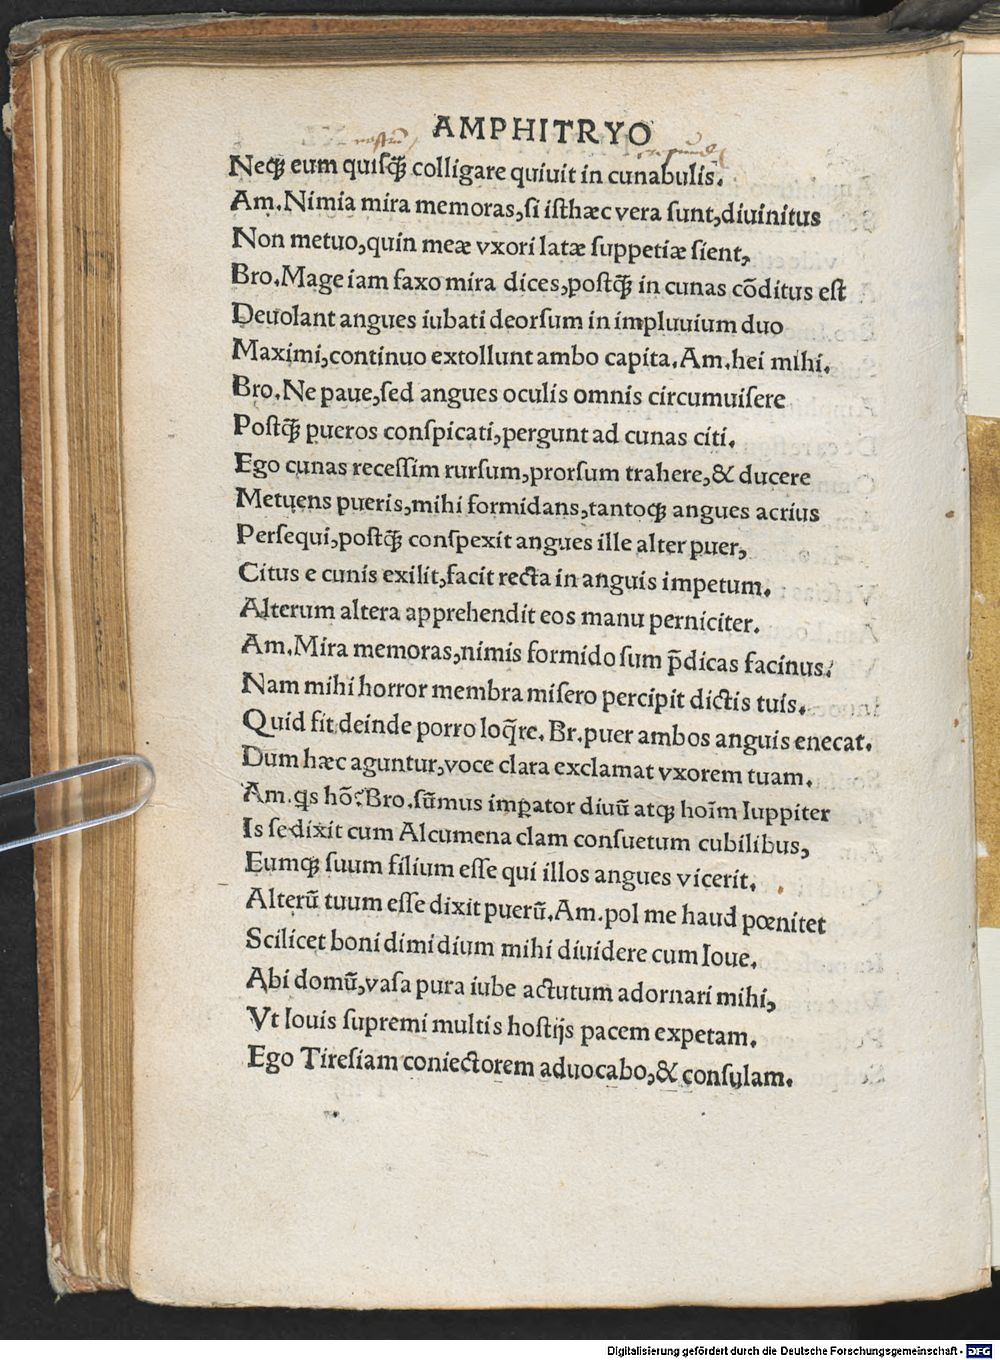 AMPHITRYO
nostrū
Neqꝫ eum quiſqꝫ̄ colligare quiuit in cunabulis.
Am.Nimia mira memoras,ſi iſthæc vera ſunt,diuinitus
Non metuo,quin meæ vxori latæ ſuppetiæ ſient,
Bro.Mage iam faxo mira dices,poſtqꝫ̄ in cunas cōditus eſt
Deuolant angues iubati deorſum in impluuium duo
Maximi,continuo extollunt ambo capita.Am.hei mihi.
Bro.Ne paue,ſed angues oculis omnis circumuiſere
Poſtqꝫ̄ pueros conſpicati,pergunt ad cunas citi.
Ego cunas receſſim rurſum,prorſum trahere,& ducere
Metuens pueris,mihi formidans,tantoqꝫ angues acrius
Perſequi,poſtqꝫ̄ conſpexit angues ille alter puer,
Citus e cunis exilit,facit recta in anguis impetum.
Alterum altera apprehendit eos manu perniciter.
Am.Mira memoras,nimis formido ſum p̄dicas facinus.
Nam mihi horror membra miſero percipit dictis tuis.
Quid fit deinde porro loq̄re.Br.puer ambos anguis enecat.
Dum hæc aguntur,voce clara exclamat vxorem tuam.
Am.qs hō?Bro.ſūmus imꝑator diuū atqꝫ hoīm Iuppiter
Is ſe dixit cum Alcumena clam conſuetum cubilibus,
Eumqꝫ ſuum filium eſſe qui illos angues vicerit.
Alterū tuum eſſe dixit puerū.Am.pol me haud pœnitet
Scilicet boni dimidium mihi diuidere cum Ioue.
Abi domū,vaſa pura iube actutum adornari mihi,
Vt Iouis ſupremi multis hoſtijs pacem expetam.
Ego Tireſiam coniectorem aduocabo,& conſulam.
Digitalisierung gefördert durch die Deutsche Forschungsgemeinschaft - DFG